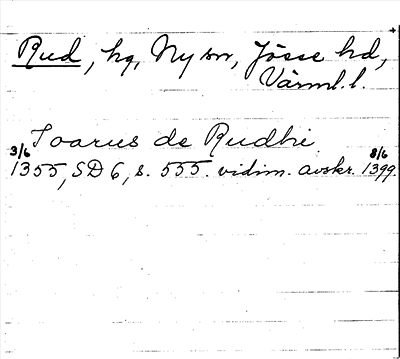 Rud, hg, Ny sn, Jösse hd,
Värml. l.
Toarus de Rudhi
3/6 1355, SD 6, s. 555. vidim. avskr. 8/6 1399.